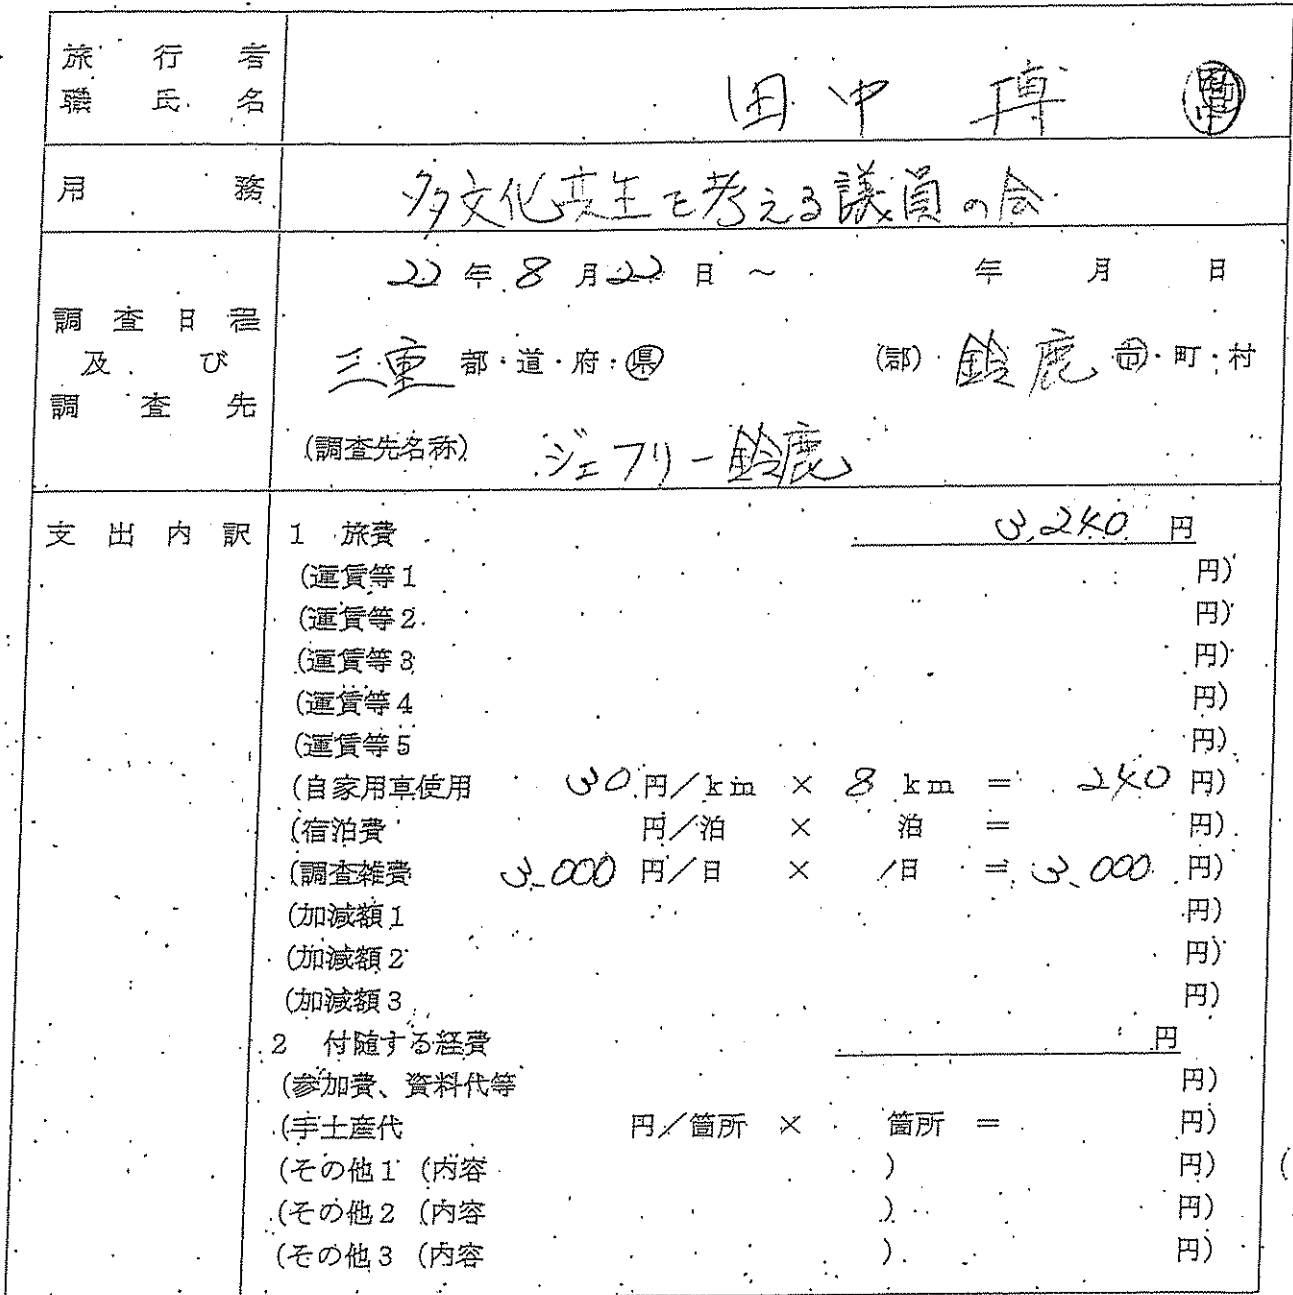 旅行者
職氏名
田中 博
用務
多文化共生を考える議員の会
22年8月22日～ 年 月 日
調査日程
及び
調査先
三重 都・道・府・県 (郡) 鈴鹿 市・町・村
(調査先名称) ジェフリー鈴鹿
支出内訳
1 旅費 3,240 円
(運賃等1 円)
(運賃等2 円)
(運賃等3 円)
(運賃等4 円)
(運賃等5 円)
(自家用車使用 30円/km × 8 km = 240 円)
(宿泊費 円/泊 × 泊 = 円)
(調査雑費 3,000 円/日 × 1日 = 3,000 円)
(加減額1 円)
(加減額2 円)
(加減額3 円)
2 付随する経費 円
(参加費、資料代等 円)
(手土産代 円/箇所 × 箇所 = 円)
(その他1 (内容 ) 円)
(その他2 (内容 ) 円)
(その他3 (内容 ) 円)